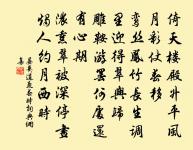 倚天樓殿升平風
月彩仗春移
鸞絲鳳竹長生調
里迎得翠輿歸
雕鞍游罷何處還
有心期
濃熏翠被深停畫
燭人約月西時
晏幾道慶春時詞典網